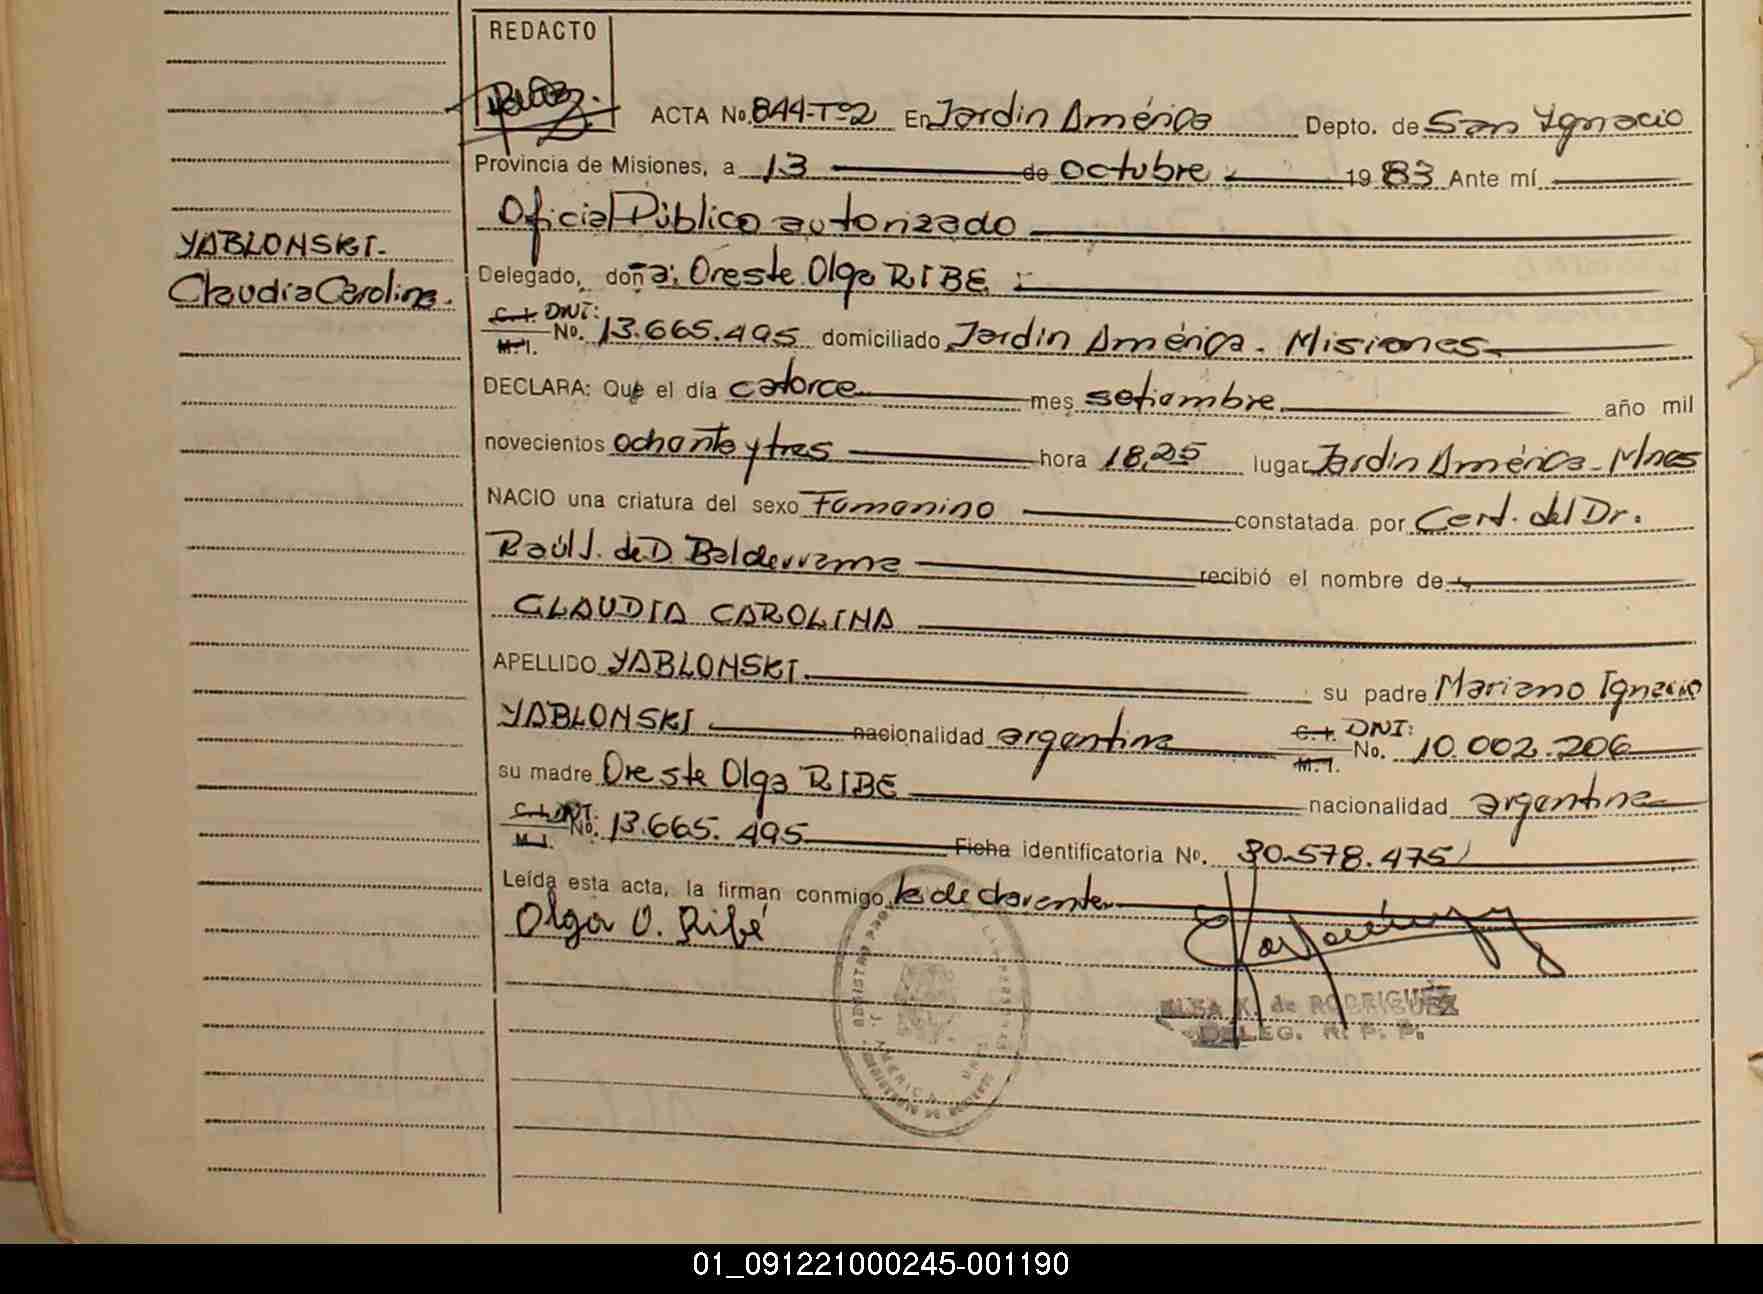 REDACTO
ACTA No. 844-Tº2 En Jardín América Depto. de San Ygnacio
Provincia de Misiones, a 13 de octubre 19 83 Ante mí
Oficial Público autorizado
YABLONSKI.
Claudia Carolina.
Delegado, doña: Oreste Olga RIBE
C.I. DNI:
M.I. No. 13.665.495 domiciliado Jardín América. Misiones
DECLARA: Que el día catorce mes setiembre año mil
novecientos ochenta y tres hora 18,25 lugar Jardín América - Mnes
NACIO una criatura del sexo Femenino constatada por Cert. del Dr.
Raúl J. de D. Balderrama recibió el nombre de
CLAUDIA CAROLINA
APELLIDO YABLONSKI. su padre Mariano Ignacio
YABLONSKI nacionalidad argentina C.I. M.I. DNI: No. 10.002.206
su madre Oreste Olga RIBE nacionalidad argentina
C.I. M.I. DNI: No. 13.665.495 Ficha identificatoria No. 30.578.475
Leída esta acta, la firman conmigo, la declarante
Olga O. Ribé
ELSA K. de RODRIGUEZ
DELEG. R. P. P.
01_091221000245-001190